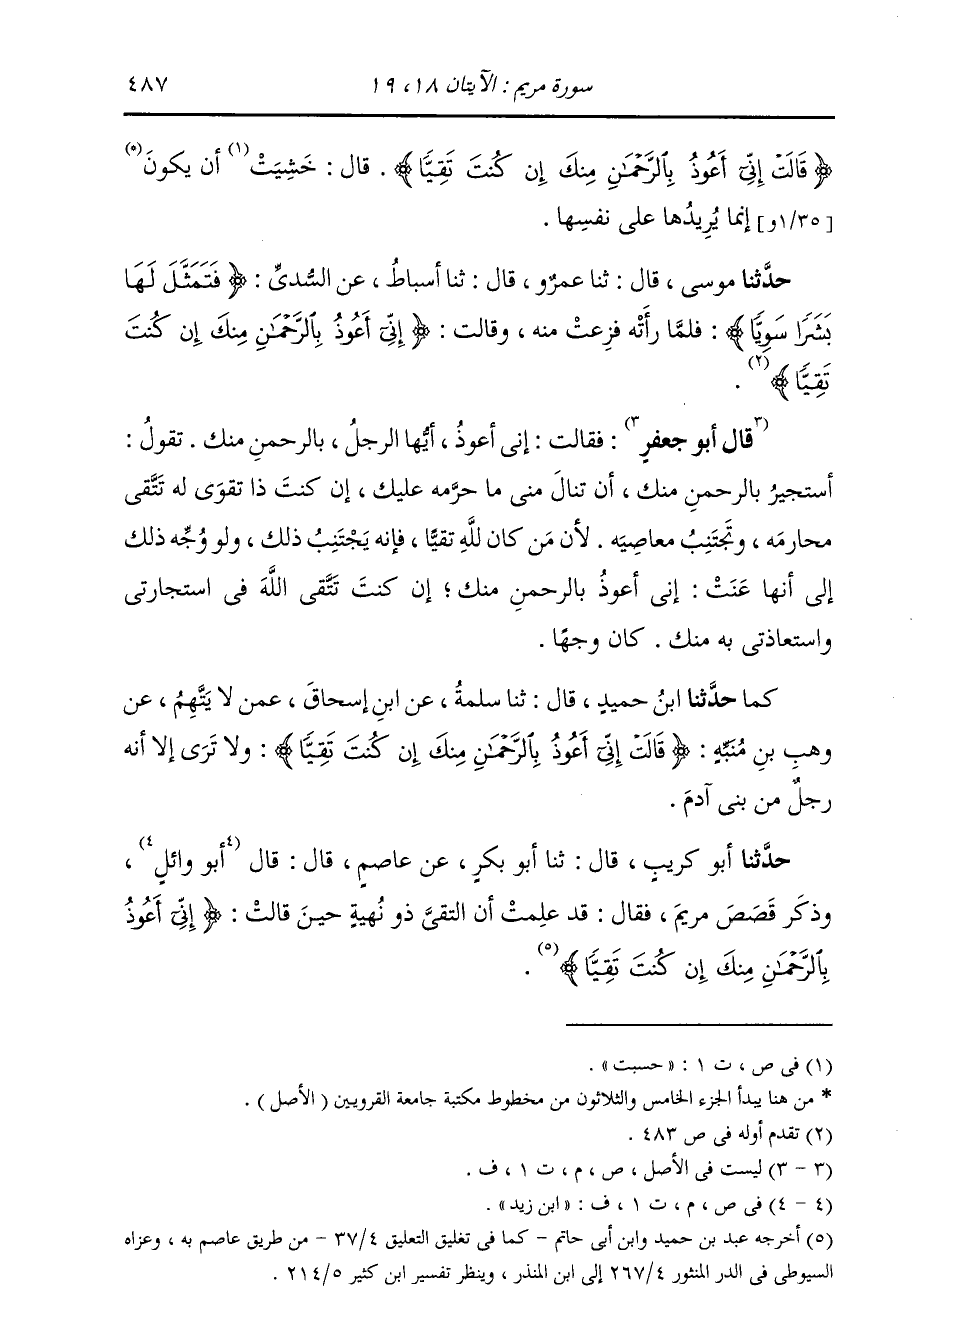 سورة مريم : الآيتان ١٨، ١٩ ٤٨٧
﴿ قَالَتْ إِنِّىٓ أَعُوذُ بِٱلرَّحْمَٰنِ مِنكَ إِن كُنتَ تَقِيًّا ﴾ . قال : خَشِيَتْ(١) أن يكونَ(*)
[١/٣٥و] إنما يُرِيدُها على نفسِها .
حدَّثنا موسى ، قال : ثنا عمرٌو ، قال : ثنا أسباطُ ، عن السُّدىِّ : ﴿ فَتَمَثَّلَ لَهَا
بَشَرًا سَوِيًّا ﴾ : فلمَّا رأَتْه فزِعتْ منه ، وقالت : ﴿ إِنِّىٓ أَعُوذُ بِٱلرَّحْمَٰنِ مِنكَ إِن كُنتَ
تَقِيًّا ﴾(٢) .
(٣قال أبو جعفرٍ٣) : فقالت : إنى أعوذُ ، أيُّها الرجلُ ، بالرحمنِ منك . تقولُ :
أستجيرُ بالرحمنِ منك ، أن تنالَ منى ما حرَّمه عليك ، إن كنتَ ذا تقوَى له تَتَّقى
محارمَه ، وتَجتَنِبُ معاصِيَه . لأن مَن كان للَّهِ تقيًّا ، فإنه يَجْتَنِبُ ذلك ، ولو وُجِّه ذلك
إلى أنها عَنَتْ : إنى أعوذُ بالرحمنِ منك ؛ إن كنتَ تَتَّقى اللَّهَ فى استجارتى
واستعاذتى به منك . كان وجهًا .
كما حدَّثنا ابنُ حميدٍ ، قال : ثنا سلمةُ ، عن ابنِ إسحاقَ ، عمن لا يَتَّهِمُ ، عن
وهبِ بنِ مُنَبِّهٍ : ﴿ قَالَتْ إِنِّىٓ أَعُوذُ بِٱلرَّحْمَٰنِ مِنكَ إِن كُنتَ تَقِيًّا ﴾ : ولا ترَى إلا أنه
رجلٌ من بنى آدمَ .
حدَّثنا أبو كريبٍ ، قال : ثنا أبو بكرٍ ، عن عاصمٍ ، قال : قال (٤أبو وائلٍ٤) ،
وذكَر قَصَصَ مريمَ ، فقال : قد علِمتْ أن التقىَّ ذو نُهيةٍ حينَ قالتْ : ﴿ إِنِّىٓ أَعُوذُ
بِٱلرَّحْمَٰنِ مِنكَ إِن كُنتَ تَقِيًّا ﴾(٥) .
(١) فى ص ، ت ١ : «حسبت» .
* من هنا يبدأ الجزء الخامس والثلاثون من مخطوط مكتبة جامعة القرويين ( الأصل ) .
(٢) تقدم أوله فى ص ٤٨٣ .
(٣ - ٣) ليست فى الأصل ، ص ، م ، ت ١ ، ف .
(٤ - ٤) فى ص ، م ، ت ١ ، ف : «ابن زيد» .
(٥) أخرجه عبد بن حميد وابن أبى حاتم - كما فى تغليق التعليق ٣٧/٤ - من طريق عاصم به ، وعزاه
السيوطى فى الدر المنثور ٢٦٧/٤ إلى ابن المنذر ، وينظر تفسير ابن كثير ٢١٤/٥ .